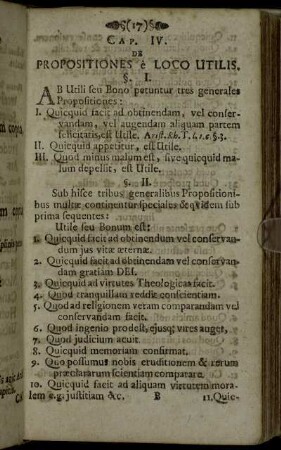 (17)
CAP. IV.
DE
PROPOSITIONES è LOCO UTILIS.
§. I.
AB Utili seu Bono petuntur tres generales
Propositiones:
I. Quicquid facit ad obtinendam, vel conser-
vandam, vel augendam aliquam partem
felicitatis, est Utile. Arist. lib. 1.
II. Quicquid appetitur, est Utile.
III. Quod minus malum est, sive quicquid ma-
lum depellit, est Utile.
§. II.
Sub hisce tribus generalibus Propositioni-
bus multæ continentur speciales & quidem sub
prima sequentes:
Utile seu Bonum est:
1. Quicquid facit ad obtinendum vel conservan-
dum jus vitæ æternæ.
2. Quicquid facit ad obtinendam vel conservan-
dam gratiam DEI.
3. Quicquid ad virtutes Theologicas facit.
4. Quod tranquillam reddit conscientiam.
5. Quod ad religionem veram comparandam vel
conservandam facit.
6. Quod ingenio prodest, ejusq; vires auget.
7. Quod judicium acuit.
8. Quicquid memoriam confirmat.
9. Quo possumus nobis eruditionem & rerum
præclararum scientiam comparare.
10. Quicquid facit ad aliquam virtutem mora-
lem e.g. justitiam &c. B 11. Quic-